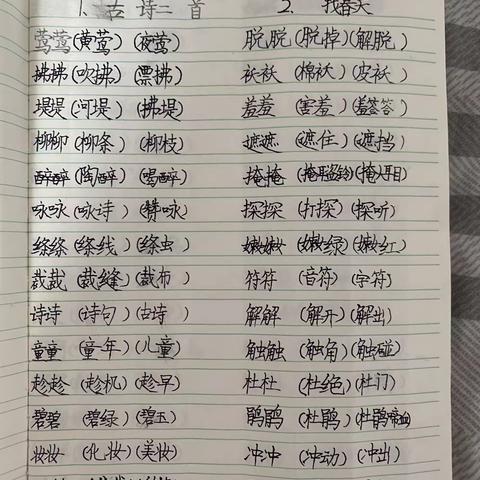 1. 古诗二首
莺莺(黄莺)(夜莺)
拂拂(吹拂)(漂拂)
堤堤(河堤)(拂堤)
柳柳(柳条)(柳枝)
醉醉(陶醉)(喝醉)
咏咏(咏诗)(赞咏)
绦绦(绦线)(绦虫)
裁裁(裁缝)(裁布)
诗诗(诗句)(古诗)
童童(童年)(儿童)
趁趁(趁机)(趁早)
碧碧(碧绿)(碧玉)
妆妆(化妆)(美妆)
2. 找春天
脱脱(脱掉)(解脱)
袄袄(棉袄)(皮袄)
羞羞(害羞)(羞答答)
遮遮(遮住)(遮挡)
掩掩(掩耳盗铃)(掩人耳目)
探探(打探)(探听)
嫩嫩(嫩绿)(嫩红)
符符(音符)(字符)
解解(解开)(解出)
触触(触角)(触碰)
杜杜(杜绝)(杜门)
鹃鹃(杜鹃)(杜鹃啼血)
冲冲(冲动)(冲出)